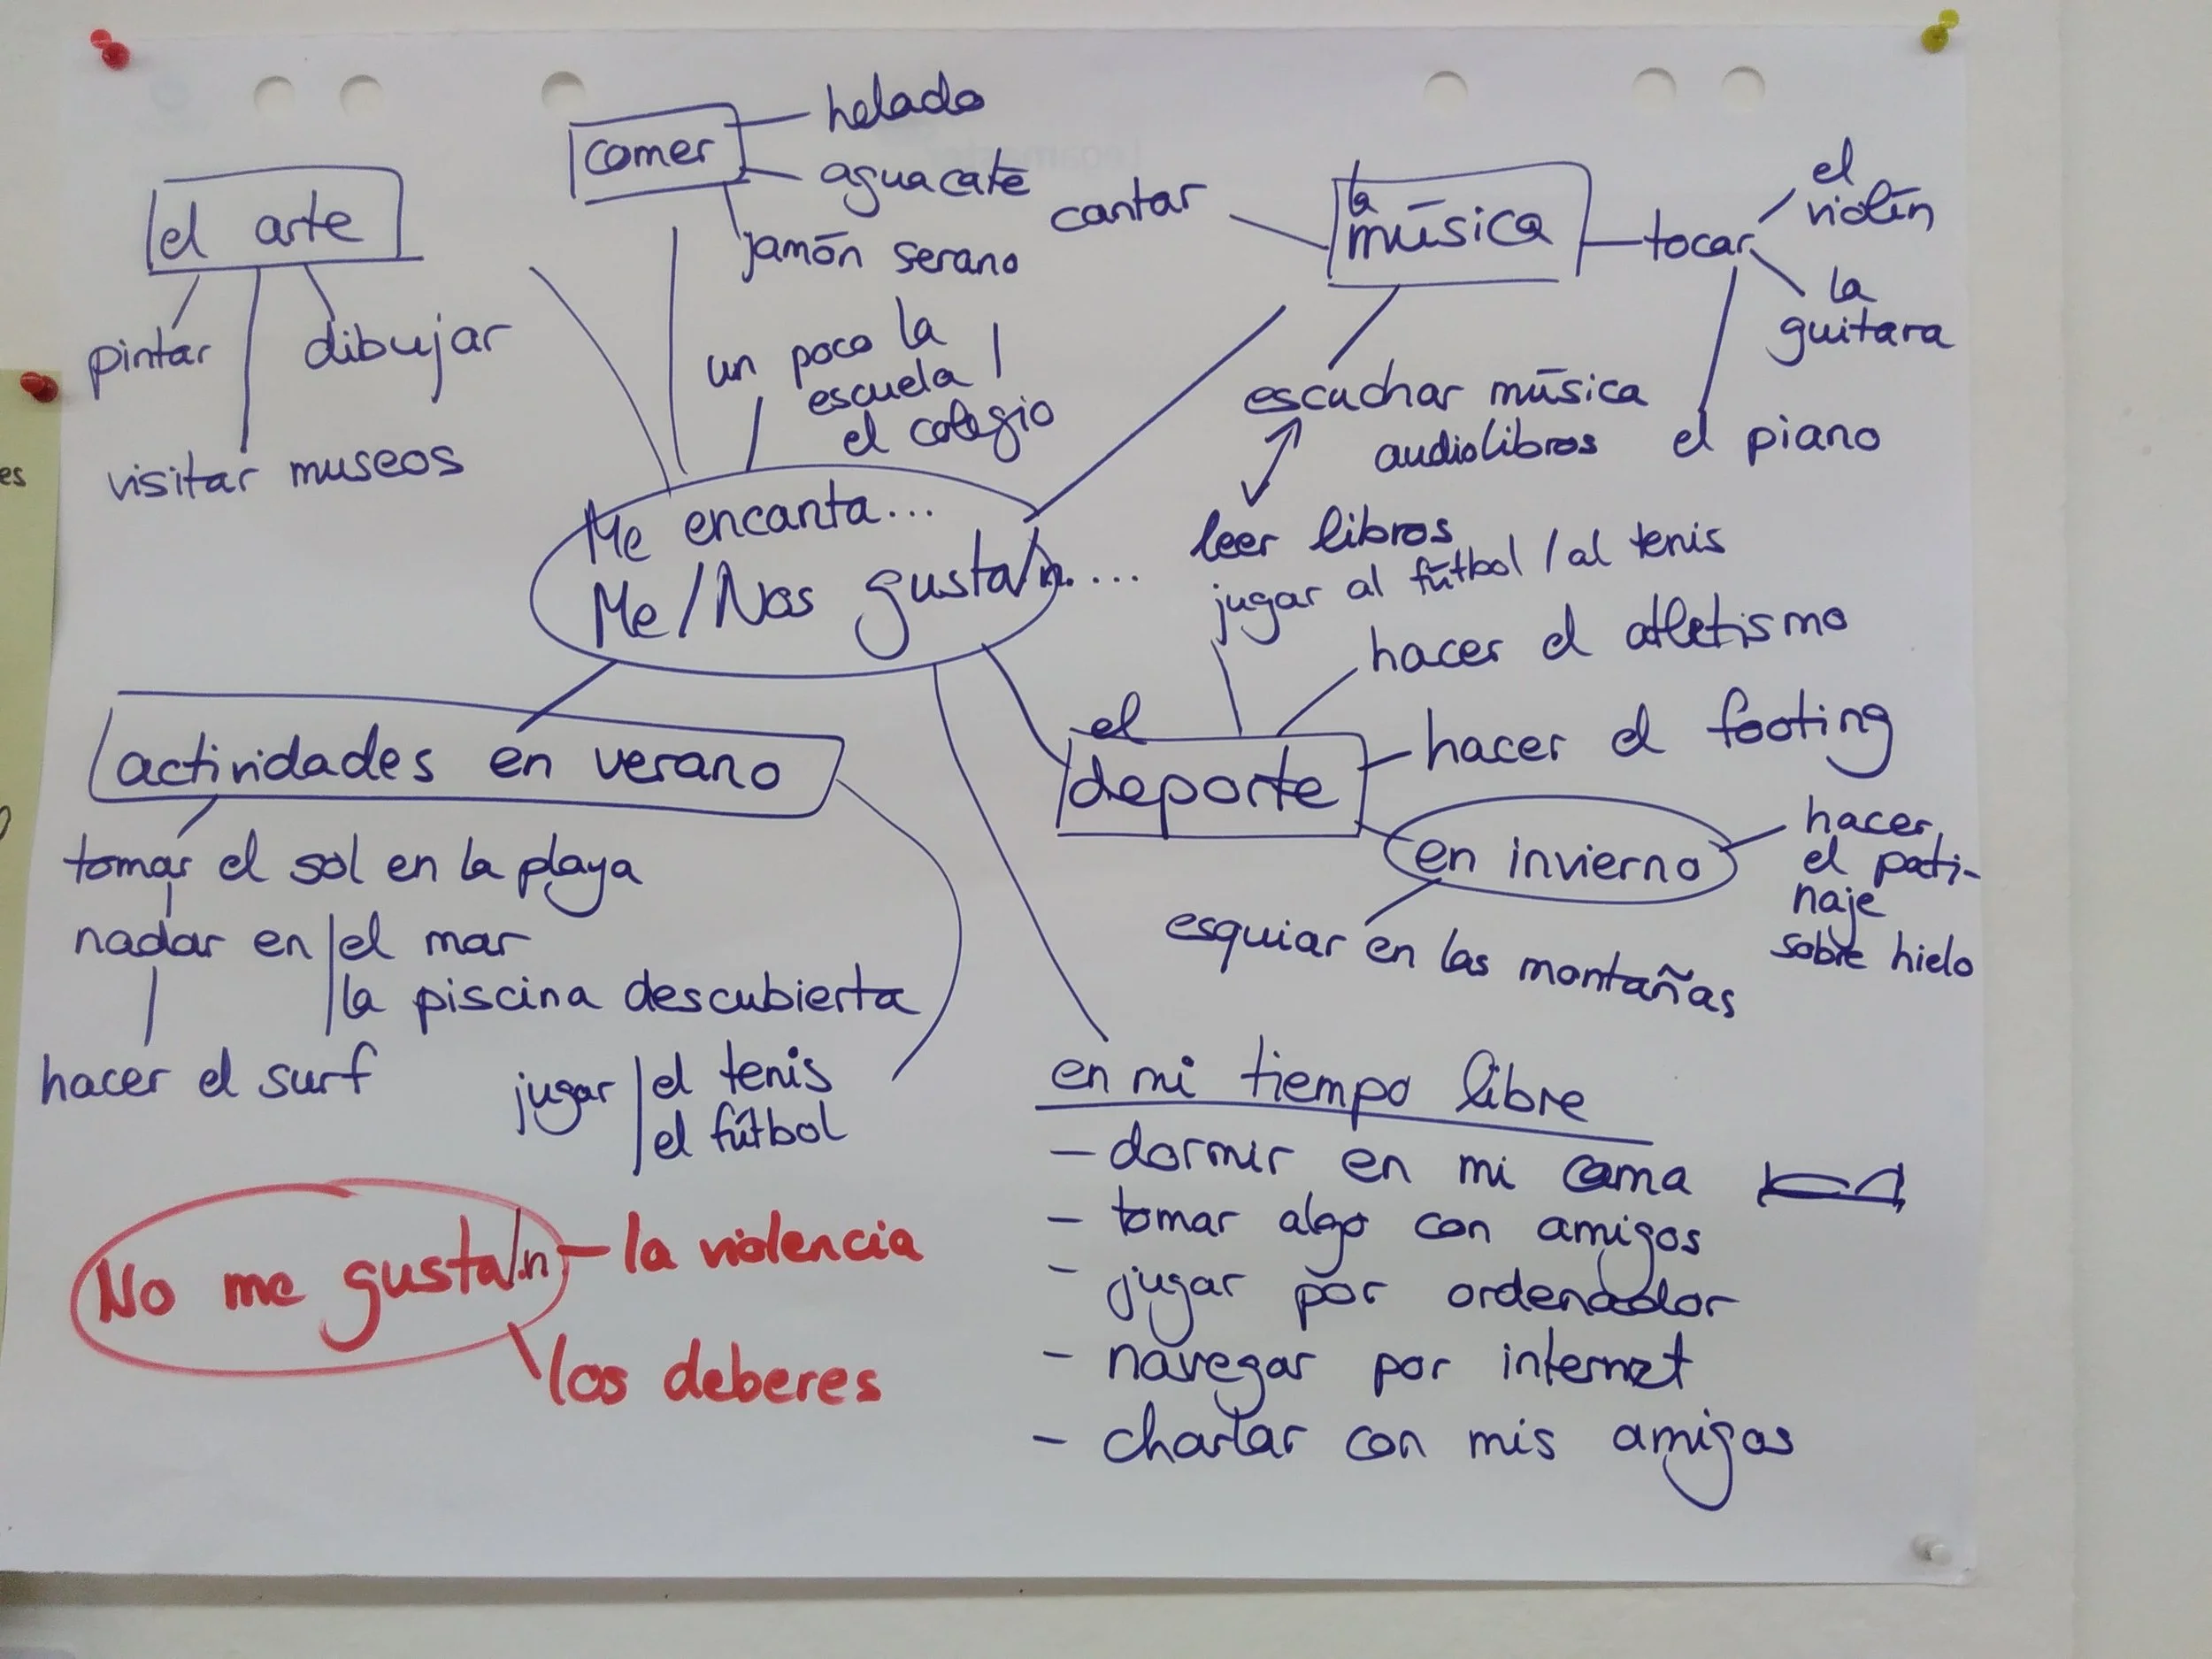 comer
helado
aguacate
jamón serano
el arte
pintar
dibujar
visitar museos
un poco la
escuela /
el colegio
cantar
la
música
tocar
el
violín
la
guitara
el piano
escuchar música
audiolibros
leer libros
Me encanta...
Me/Nos gusta/n....
jugar al fútbol / al tenis
hacer el atletismo
el
deporte
hacer el footing
en invierno
hacer
el pati-
naje
sobre hielo
esquiar en las montañas
actividades en verano
tomar el sol en la playa
nadar en el mar
la piscina descubierta
hacer el surf
jugar el tenis
el fútbol
en mi tiempo libre
- dormir en mi cama
- tomar algo con amigos
- jugar por ordenador
- navegar por internet
- charlar con mis amigos
No me gusta/n
la violencia
los deberes
es